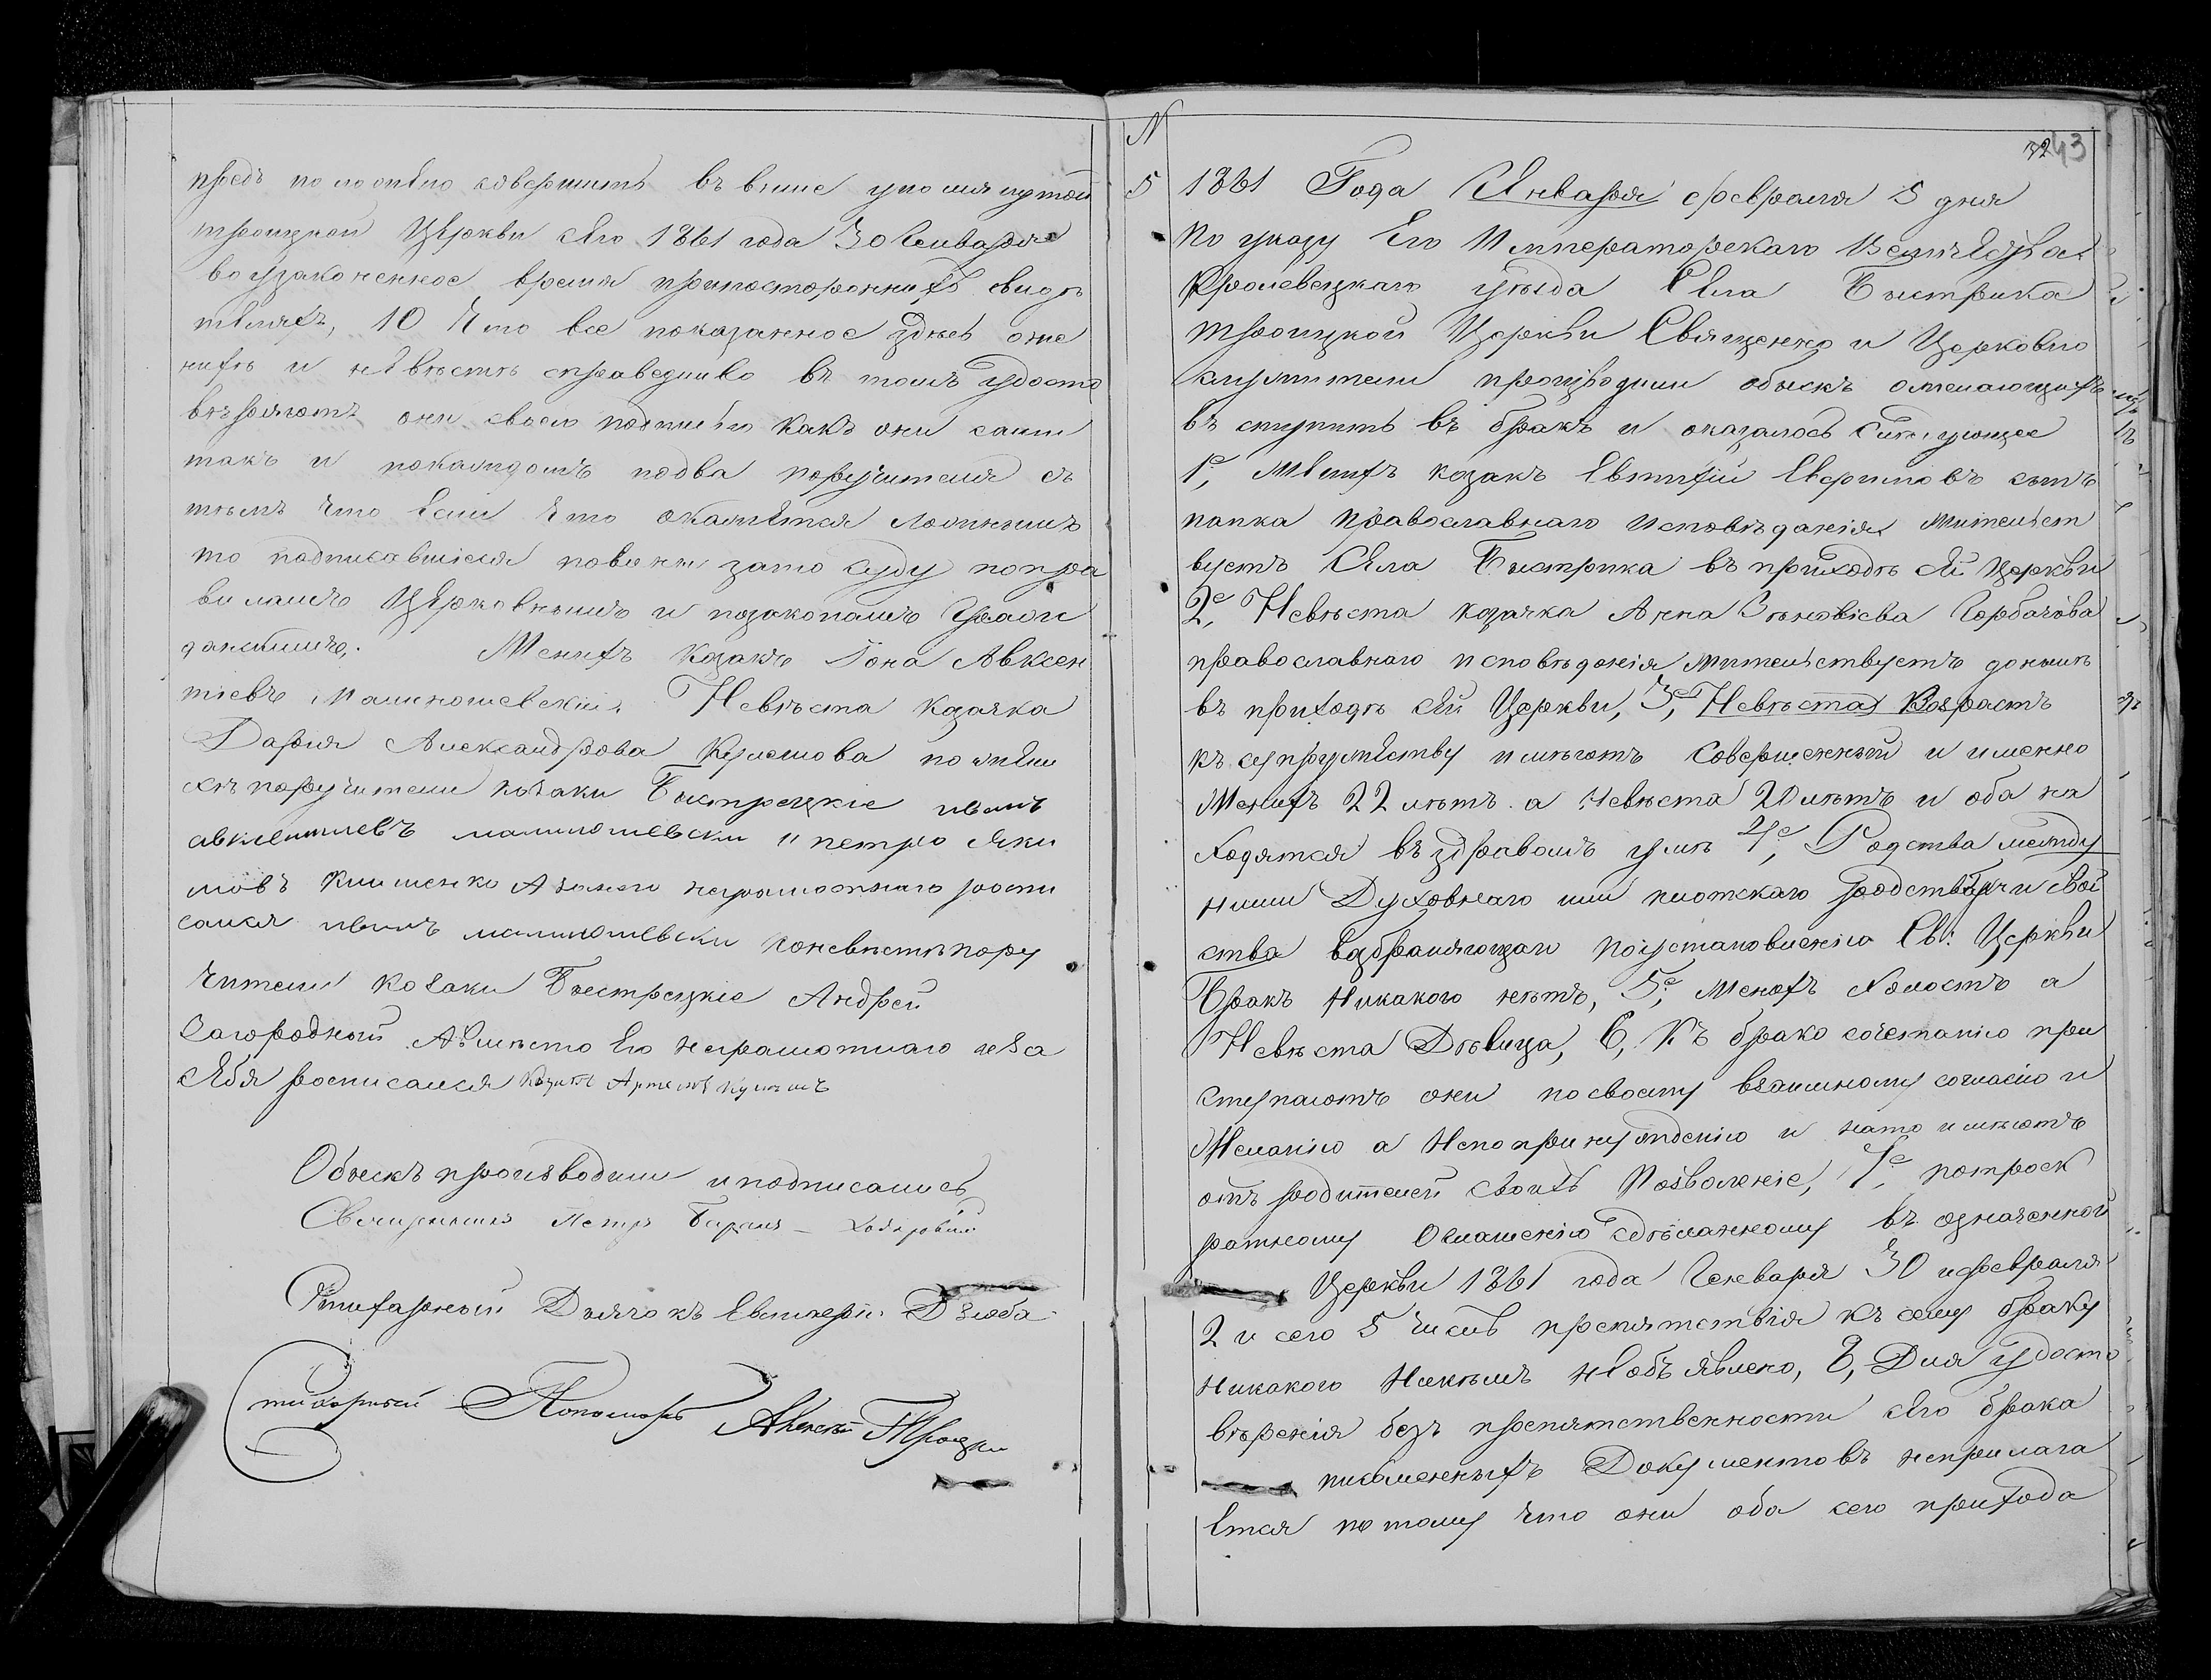 предъ положено совершить въ выше упомянутой
троицкой Церкви сего 1861 года 30 Генваря
воузаконенное время припостороннихъ свидѣ
теляхъ, 10 Что все показанное здѣсь оже
нихѣ и невѣстѣ справедливо въ томъ удосто
вѣряютъ они своею подписью какъ они сами
такъ и покаждомъ подва поручителя съ
тѣмъ что если что окажется ложнымъ
то подписавшіеся повинны зато суду попра
виламъ Церковнымъ и позаконамъ Граж
данскимъ. Женихъ козакъ Іона Авксен
тіевъ Малиношевскій Невѣста козачка
Дарія Александрова Кулешова по жени
хѣ поручители козаки Быстрецкіе иванъ
авксентиевъ малиношевски и петро Яки
мовъ Клименко Азанего неграмотнаго роспи
сался иванъ малиношевски Поневѣстѣ пору
чители козаки Быстрецкіе Андрей
Загородный Авмѣсто его неграмотнаго иза
себя росписался Козакъ Артемъ
Обыскъ производили и подписались
Священникъ Петръ
Стихарный Дьячокъ Евтихерій Дзюба
Стихарный Пономарь Алексѣй Троцки
N
32 43
5 1861 Года Января февраля 5 дня
По указу Его Императорскаго Величества
Кролевецкаго уѣзда Села Быстрика
троицкой Церкви Священно и Церковно
служители производили обыскъ ожелающихъ
въ ступить въ бракъ и оказалось Слѣдующее
1е, Женихъ козакъ Евтихій Евфимовъ сынъ
папка православнаго исповѣданія жительст
вуетъ Села Быстрика въ приходѣ сей Церкви
2е, Невѣста козачка Анна Зѣновіева Горбачова
православнаго исповѣданія жительствуетъ донынѣ
въ приходѣ сей Церкви, 3е, Невѣста Возрастъ
къ супружеству имѣютъ Совершенный и именно
Женихъ 22 лѣтъ а Невѣста 20 лѣтъ и оба на
ходятся въ здравомъ умѣ 4е, Родства между
ними Духовнаго или плотскаго родства и свой
ства возбраняющаго поустановленію Св: Церкви
Бракъ Никакого нѣтъ, 5е, Женихъ Холостъ а
Невѣста Дѣвица, 6, Къ брако сочетанію при
ступаютъ они посвоему взаимному согласію и
Желанію а Непопринужденію и нато имѣютъ
отъ родителей своихъ Позволеніе, 7е, потроек
ратному Оглашенію сдѣланному въ означенной
Церкви 1861 года Генваря 30 ифевраля
2 и сего 5 числъ препятствія къ сему браку
Никакого Никѣмъ Необъявлено, 8, Для удосто
вѣренія безъ препятственности сего брака
писменныхъ Документовъ неприлага
ется потому что они оба сего прихода